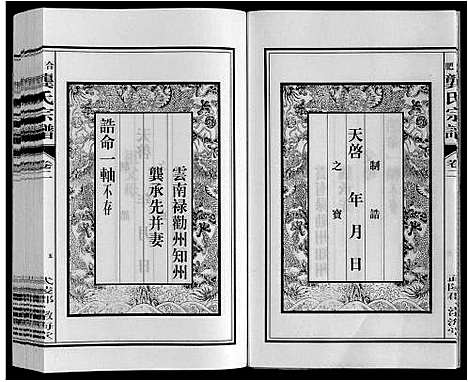 肥
龔氏宗譜
卷二
制誥
天啓 年月日
之寶
雲南祿勸州知州
龔承先并妻
誥命一軸不存
合
龔氏宗譜
卷二
五